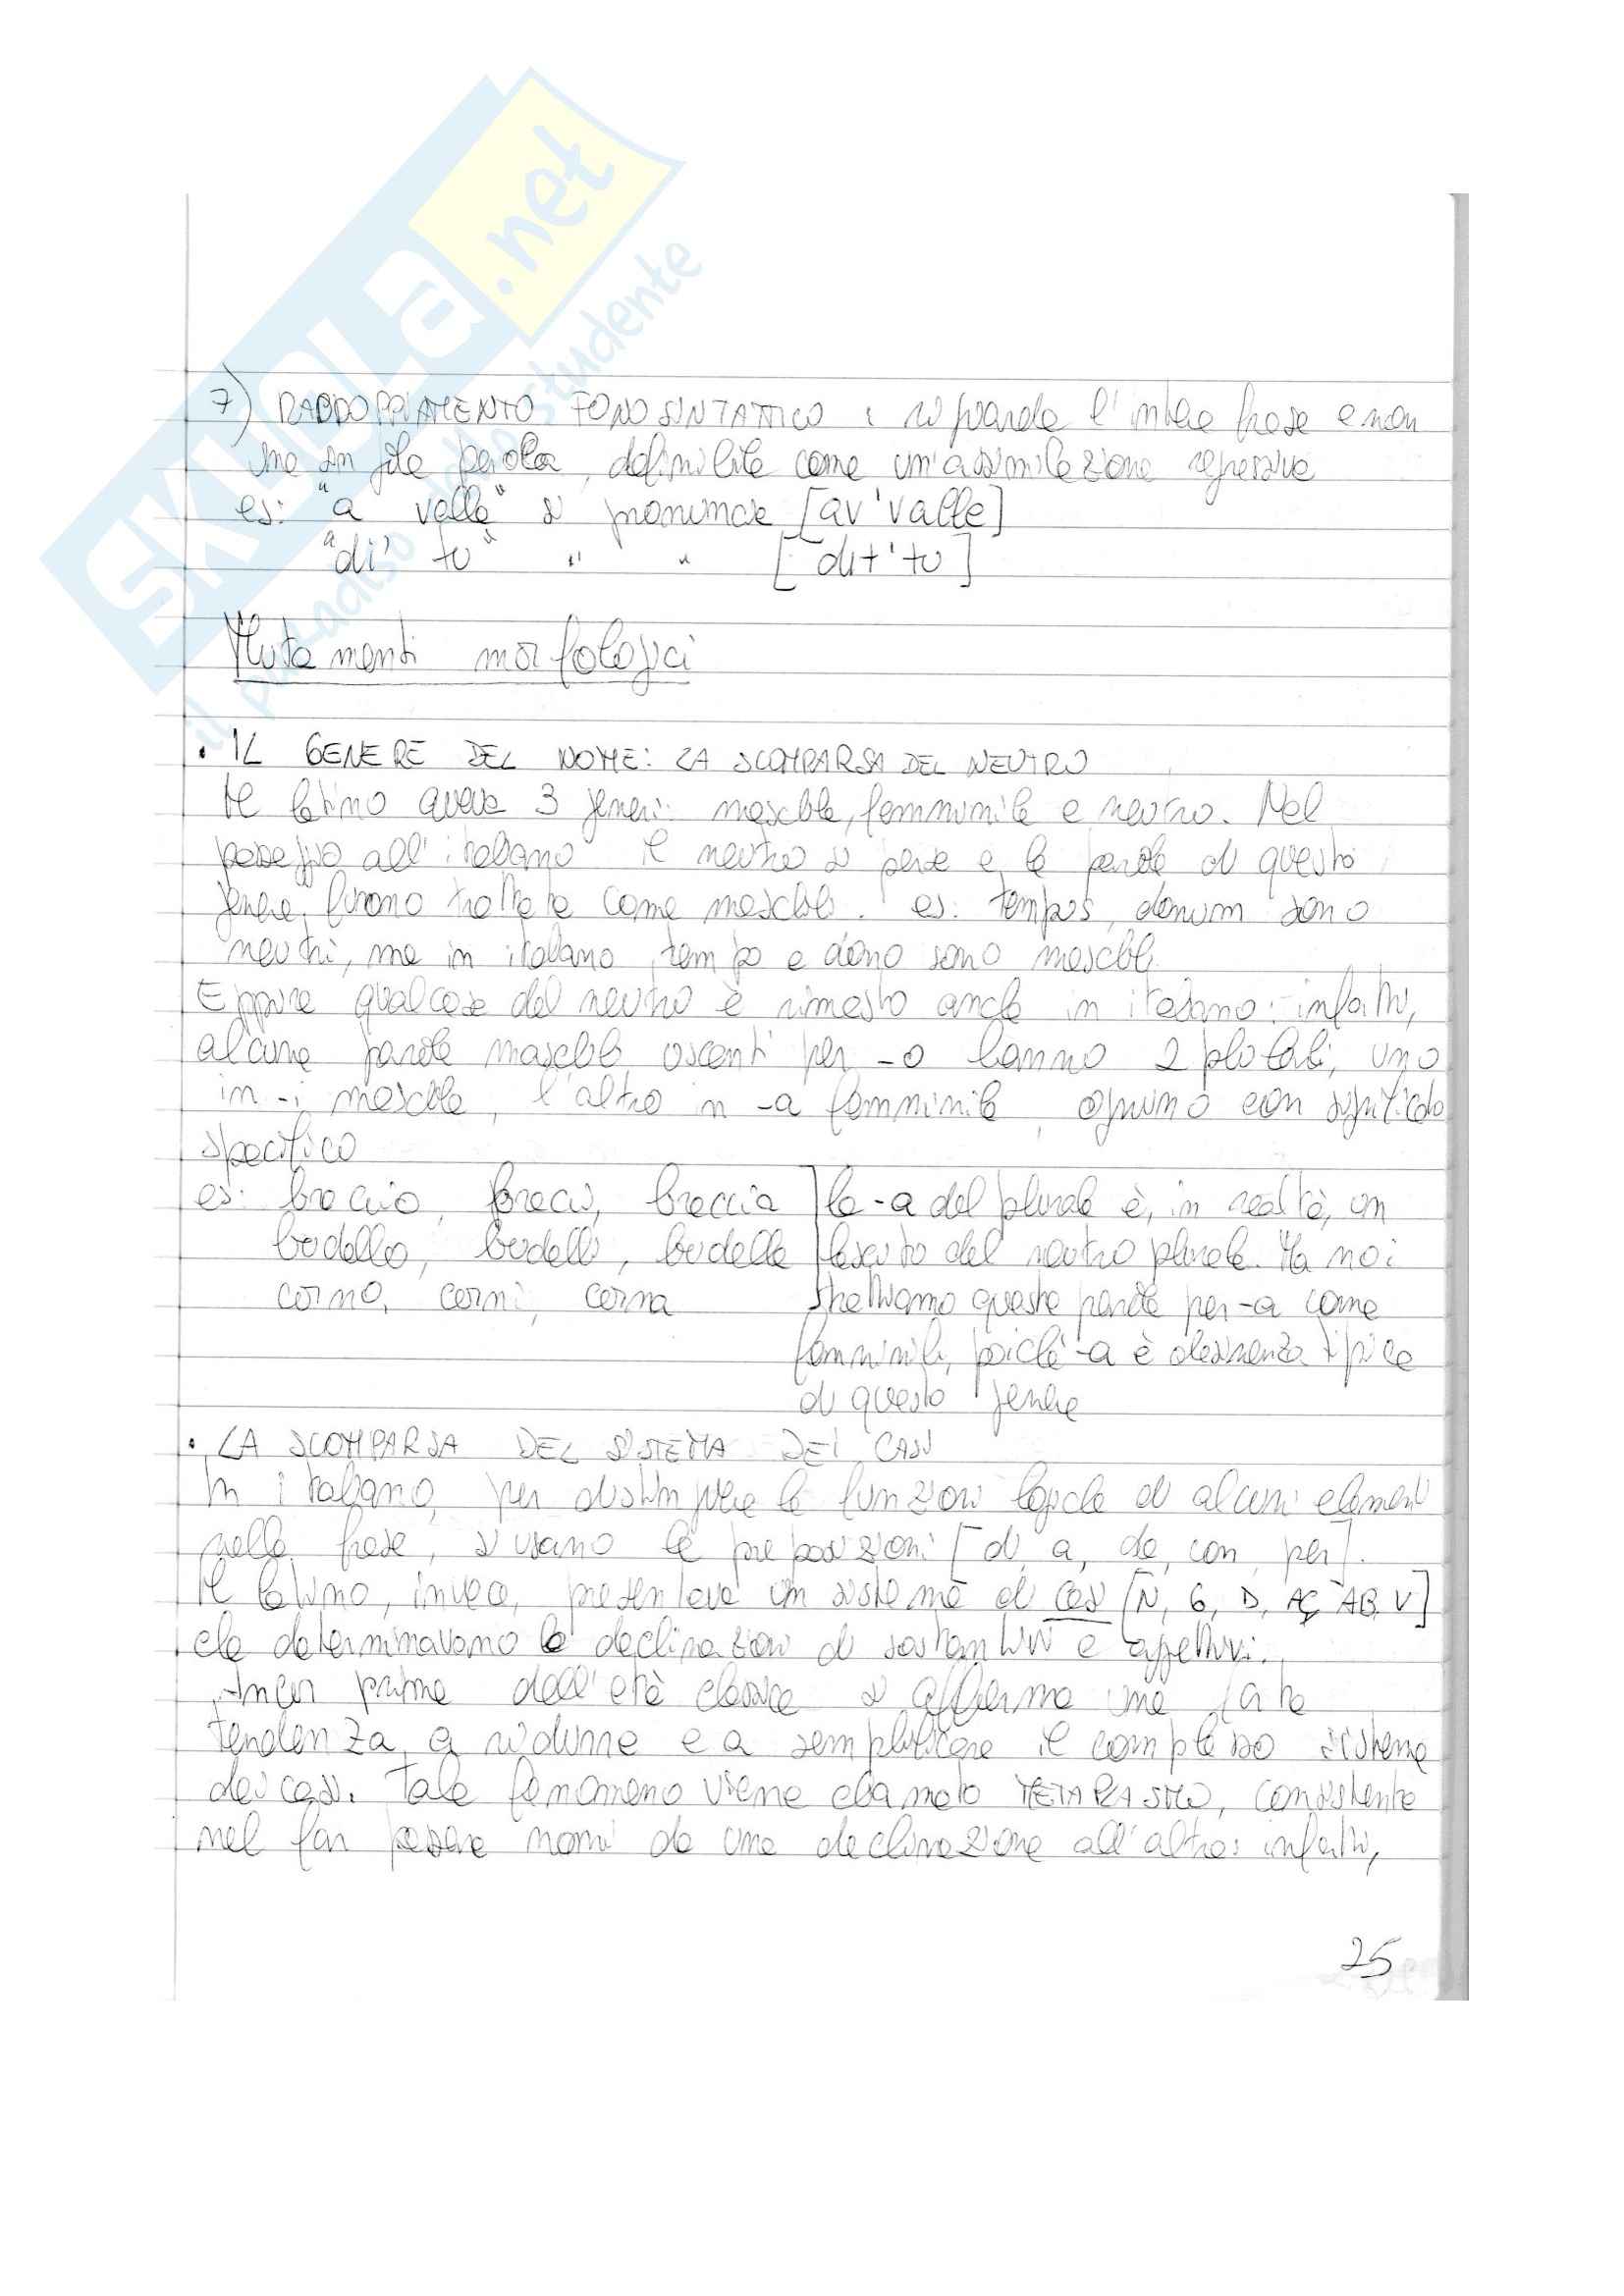 SKUOLA.net
il paradiso dello studente
7) RADDOPPIAMENTO FONOSINTATTICO: riguarda l'intera frase e non
una singola parola, definibile come un'assimilazione regressiva
es: "a valle" si pronuncia [av'valle]
"di' tu" " " [dit'tu]
Mutamenti morfologici
• IL GENERE DEL NOME: LA SCOMPARSA DEL NEUTRO
Il latino aveva 3 generi: maschile, femminile e neutro. Nel
passaggio all'italiano il neutro si perse e le parole di questo
genere furono trattate come maschili. es: tempus, donum sono
neutri, ma in italiano tempo e dono sono maschili.
Eppure qualcosa del neutro è rimasto anche in italiano: infatti,
alcune parole maschili uscenti per -o hanno 2 plurali, uno
in -i maschile, l'altro in -a femminile, ognuno con significato
specifico
es: braccio, bracci, braccia
budello, budelli, budella
corno, corni, corna
la -a del plurale è, in realtà, un
lascito del neutro plurale. Ma noi
sentiamo queste parole per -a come
femminili, poiché -a è desinenza tipica
di questo genere
• LA SCOMPARSA DEL SISTEMA DEI CASI
In italiano, per distinguere le funzioni logiche di alcuni elementi
nella frase, si usano le preposizioni [di, a, da, con, per].
Il latino, invece, presentava un sistema di casi [N, G, D, AC, AB, V]
che determinavano le declinazioni di sostantivi e aggettivi.
Ancor prima dell'età classica si afferma una forte
tendenza a ridurre e a semplificare il complesso sistema
dei casi. Tale fenomeno viene chiamato METAPLASMO, consistente
nel far passare nomi da una declinazione all'altra: infatti,
25